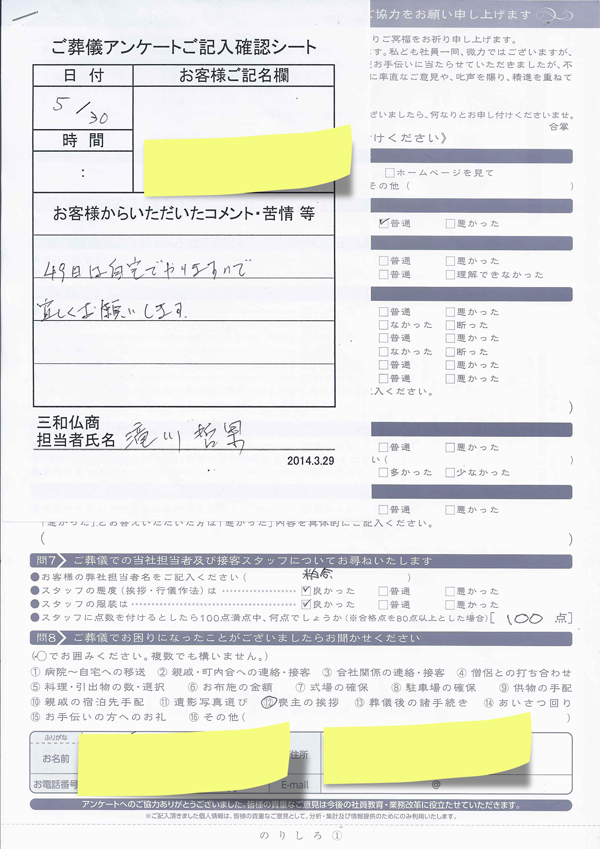 ご葬儀アンケートご記入確認シート
日 付
お客様ご記名欄
5/30
時 間
:
お客様からいただいたコメント・苦情 等
49日は自宅でやりますので
宜しくお願いします
三和仏商
担当者氏名 滝川 哲
2014.3.29
ご協力をお願い申し上げます
りご冥福をお祈り申します。
ます。私ども社員一同、微力ではございますが、
お手伝いに当たらせていただきましたが、不
に率直なご意見や、叱声を賜り、精進を重ねて
ございましたら、何なりとお申し付けくださいませ。
合掌
付けください》
□ホームページを見て
その他( )
☑普通 □悪かった
□普通 □悪かった
□普通 □理解できなかった
□普通 □悪かった
□なかった □断った
□普通 □悪かった
□なかった □断った
□普通 □悪かった
□普通 □悪かった
記入ください。
)
□普通 □悪かった
い( )
□多かった □少なかった
□普通 □悪かった
「悪かった」とお答えいただいた方は「悪かった」内容を具体的にご記入ください。
( )
問7 ご葬儀での当社担当者及び接客スタッフについてお尋ねいたします
●お客様の弊社担当者名をご記入ください( )
●スタッフの態度(挨拶・行儀作法)は ☑良かった □普通 □悪かった
●スタッフの服装は ☑良かった □普通 □悪かった
●スタッフに点数を付けるとしたら100点満点中、何点でしょうか(※合格点を80点以上とした場合)[ 100 点]
問8 ご葬儀でお困りになったことがございましたらお聞かせください
(○でお囲みください。複数でも構いません。)
① 病院〜自宅への移送 ② 親戚・町内会への連絡・接客 ③ 会社関係の連絡・接客 ④ 僧侶との打ち合わせ
⑤ 料理・引出物の数・選択 ⑥ お布施の金額 ⑦ 式場の確保 ⑧ 駐車場の確保 ⑨ 供物の手配
⑩ 親戚の宿泊先手配 ⑪ 遺影写真選び ⑫ 喪主の挨拶 ⑬ 葬儀後の諸手続き ⑭ あいさつ回り
⑮ お手伝いの方へのお礼 ⑯ その他( )
ふりがな
お名前
住所
お電話番号
E-mail
@
アンケートへのご協力ありがとうございました。皆様の貴重なご意見は今後の社員教育・業務改革に役立たせていただきます。
※ご記入頂きました個人情報は、皆様の貴重なご意見として、分析・集計及び情報提供のためにのみ利用いたします。
のりしろ①